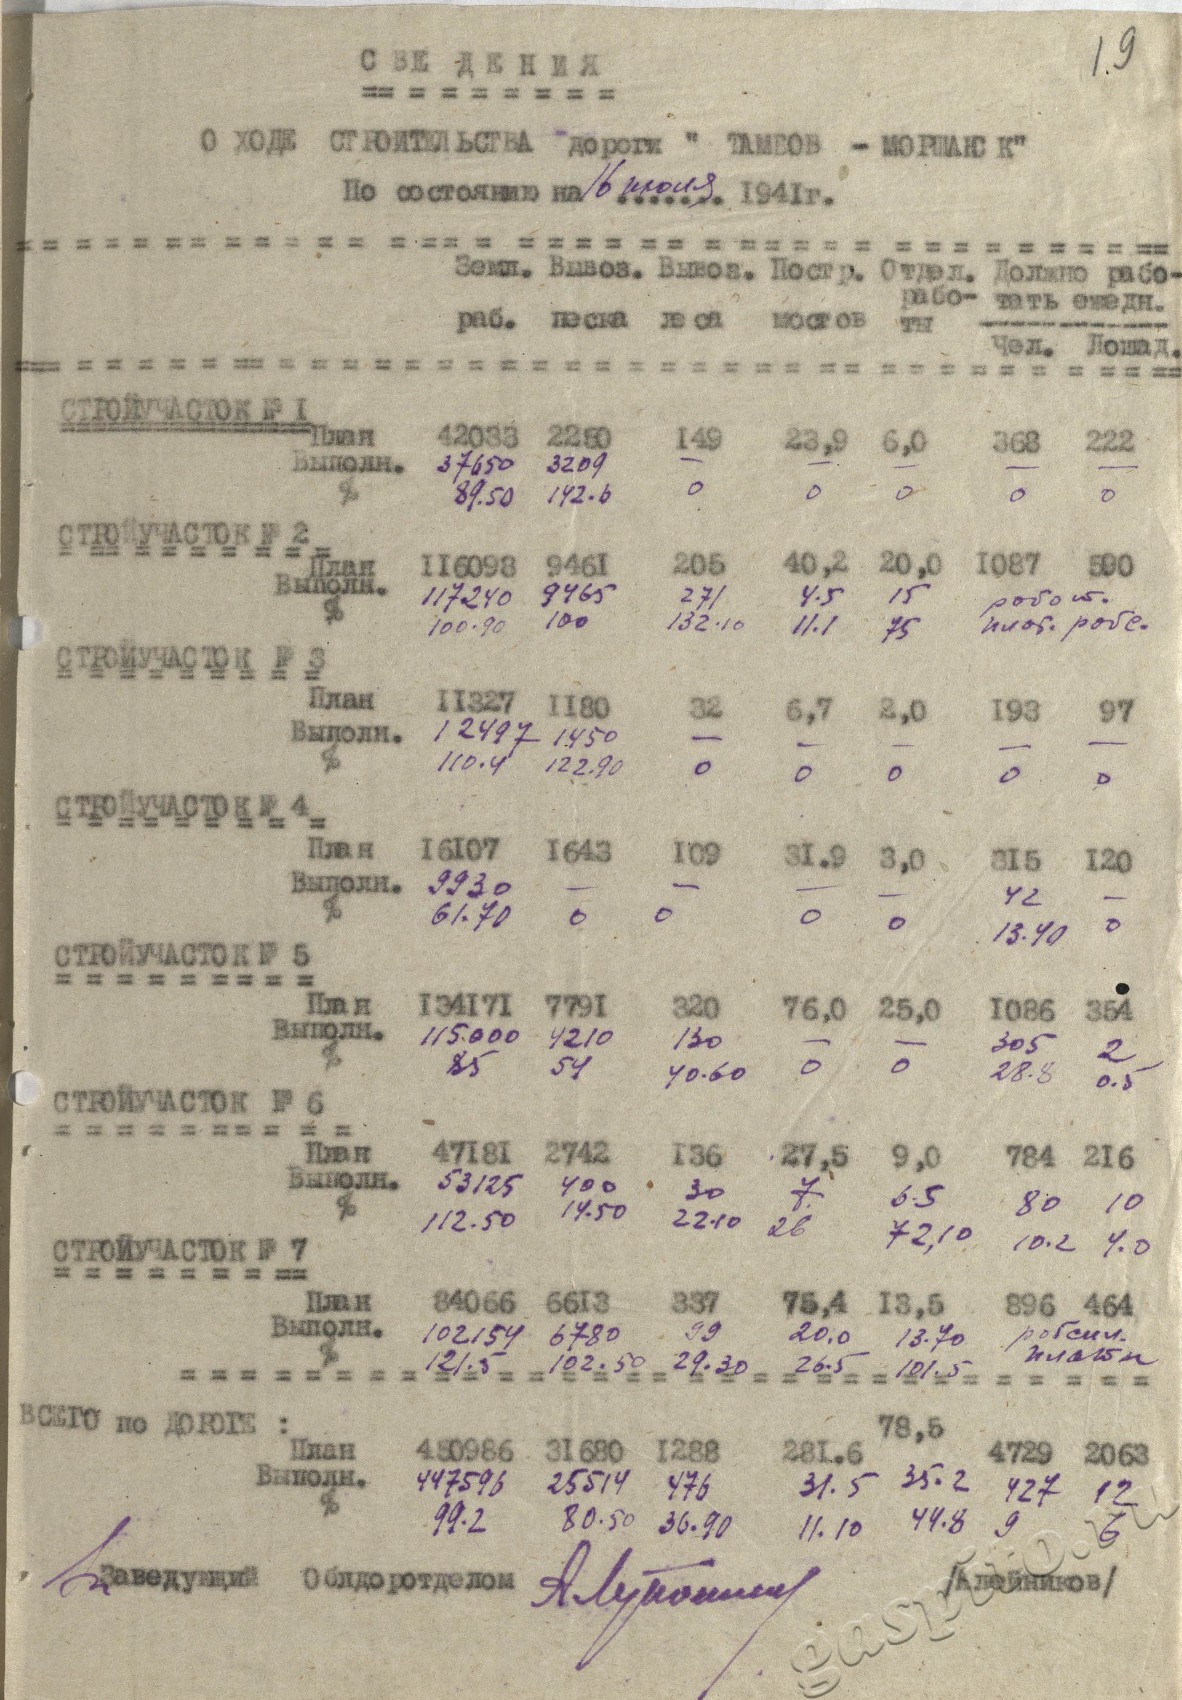 19
СВЕДЕНИЯ
О ХОДЕ СТРОИТЕЛЬСТВА дороги " ТАМБОВ - МОРШАНСК"
По состоянию на 16 июля 1941г.
Земл. Вывоз. Вывоз. Постр. Отдел. Должно рабо-
рабо- тать ежедн.
раб. песка леса мостов ты
Чел. Лошад.
СТРОЙУЧАСТОК № 1
План 42033 2250 149 23,9 6,0 368 222
Выполн. 37650 3209 — — — — —
% 89.50 142.6 0 0 0 0 0
СТРОЙУЧАСТОК № 2
План 116093 9461 205 40,2 20,0 1087 590
Выполн. 117240 9465 271 4.5 15 работ.
% 100.90 100 132.10 11.1 75
СТРОЙУЧАСТОК № 3
План 11327 1180 32 6,7 2,0 193 97
Выполн. 12497 1450 — — — — —
% 110.4 122.90 0 0 0 0 0
СТРОЙУЧАСТОК № 4
План 16107 1643 109 31.9 3,0 315 120
Выполн. 9930 — — — — 42 —
% 61.70 0 0 0 0 13.40 0
СТРОЙУЧАСТОК № 5
План 134171 7791 320 76,0 25,0 1086 354
Выполн. 115.000 4210 130 — — 305 2
% 85 54 40.60 0 0 28.8 0.5
СТРОЙУЧАСТОК № 6
План 47181 2742 136 27,5 9,0 784 216
Выполн. 53125 400 30 7 6.5 80 10
% 112.50 14.50 22.10 26 72,10 10.2 4.0
СТРОЙУЧАСТОК № 7
План 84066 6613 337 75,4 13,5 896 464
Выполн. 102154 6780 99 20.0 13.70
% 121.5 102.50 29.30 26.5 101.5
ВСЕГО по ДОРОГЕ :
План 450986 31680 1288 281.6 78,5 4729 2063
Выполн. 447596 25514 476 31.5 35.2 427 12
% 99.2 80.50 36.90 11.10 44.8 9 6
Заведующий Облдоротделом /Алейников/
gaspito.ru